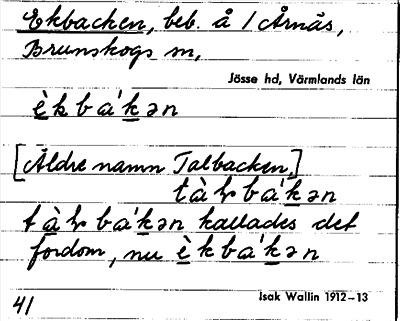 Ekbacken, beb. å / Årnäs,
Brunskogs sn,
Jösse hd, Värmlands län
è̱k b a'k̠ən
[Äldre namn Talbacken,]
tàɽ b a'k̠ən
tàɽ b a'k̠ən kallades det
fordom, nu è̱k b a'k̠ən
Isak Wallin 1912–13
41